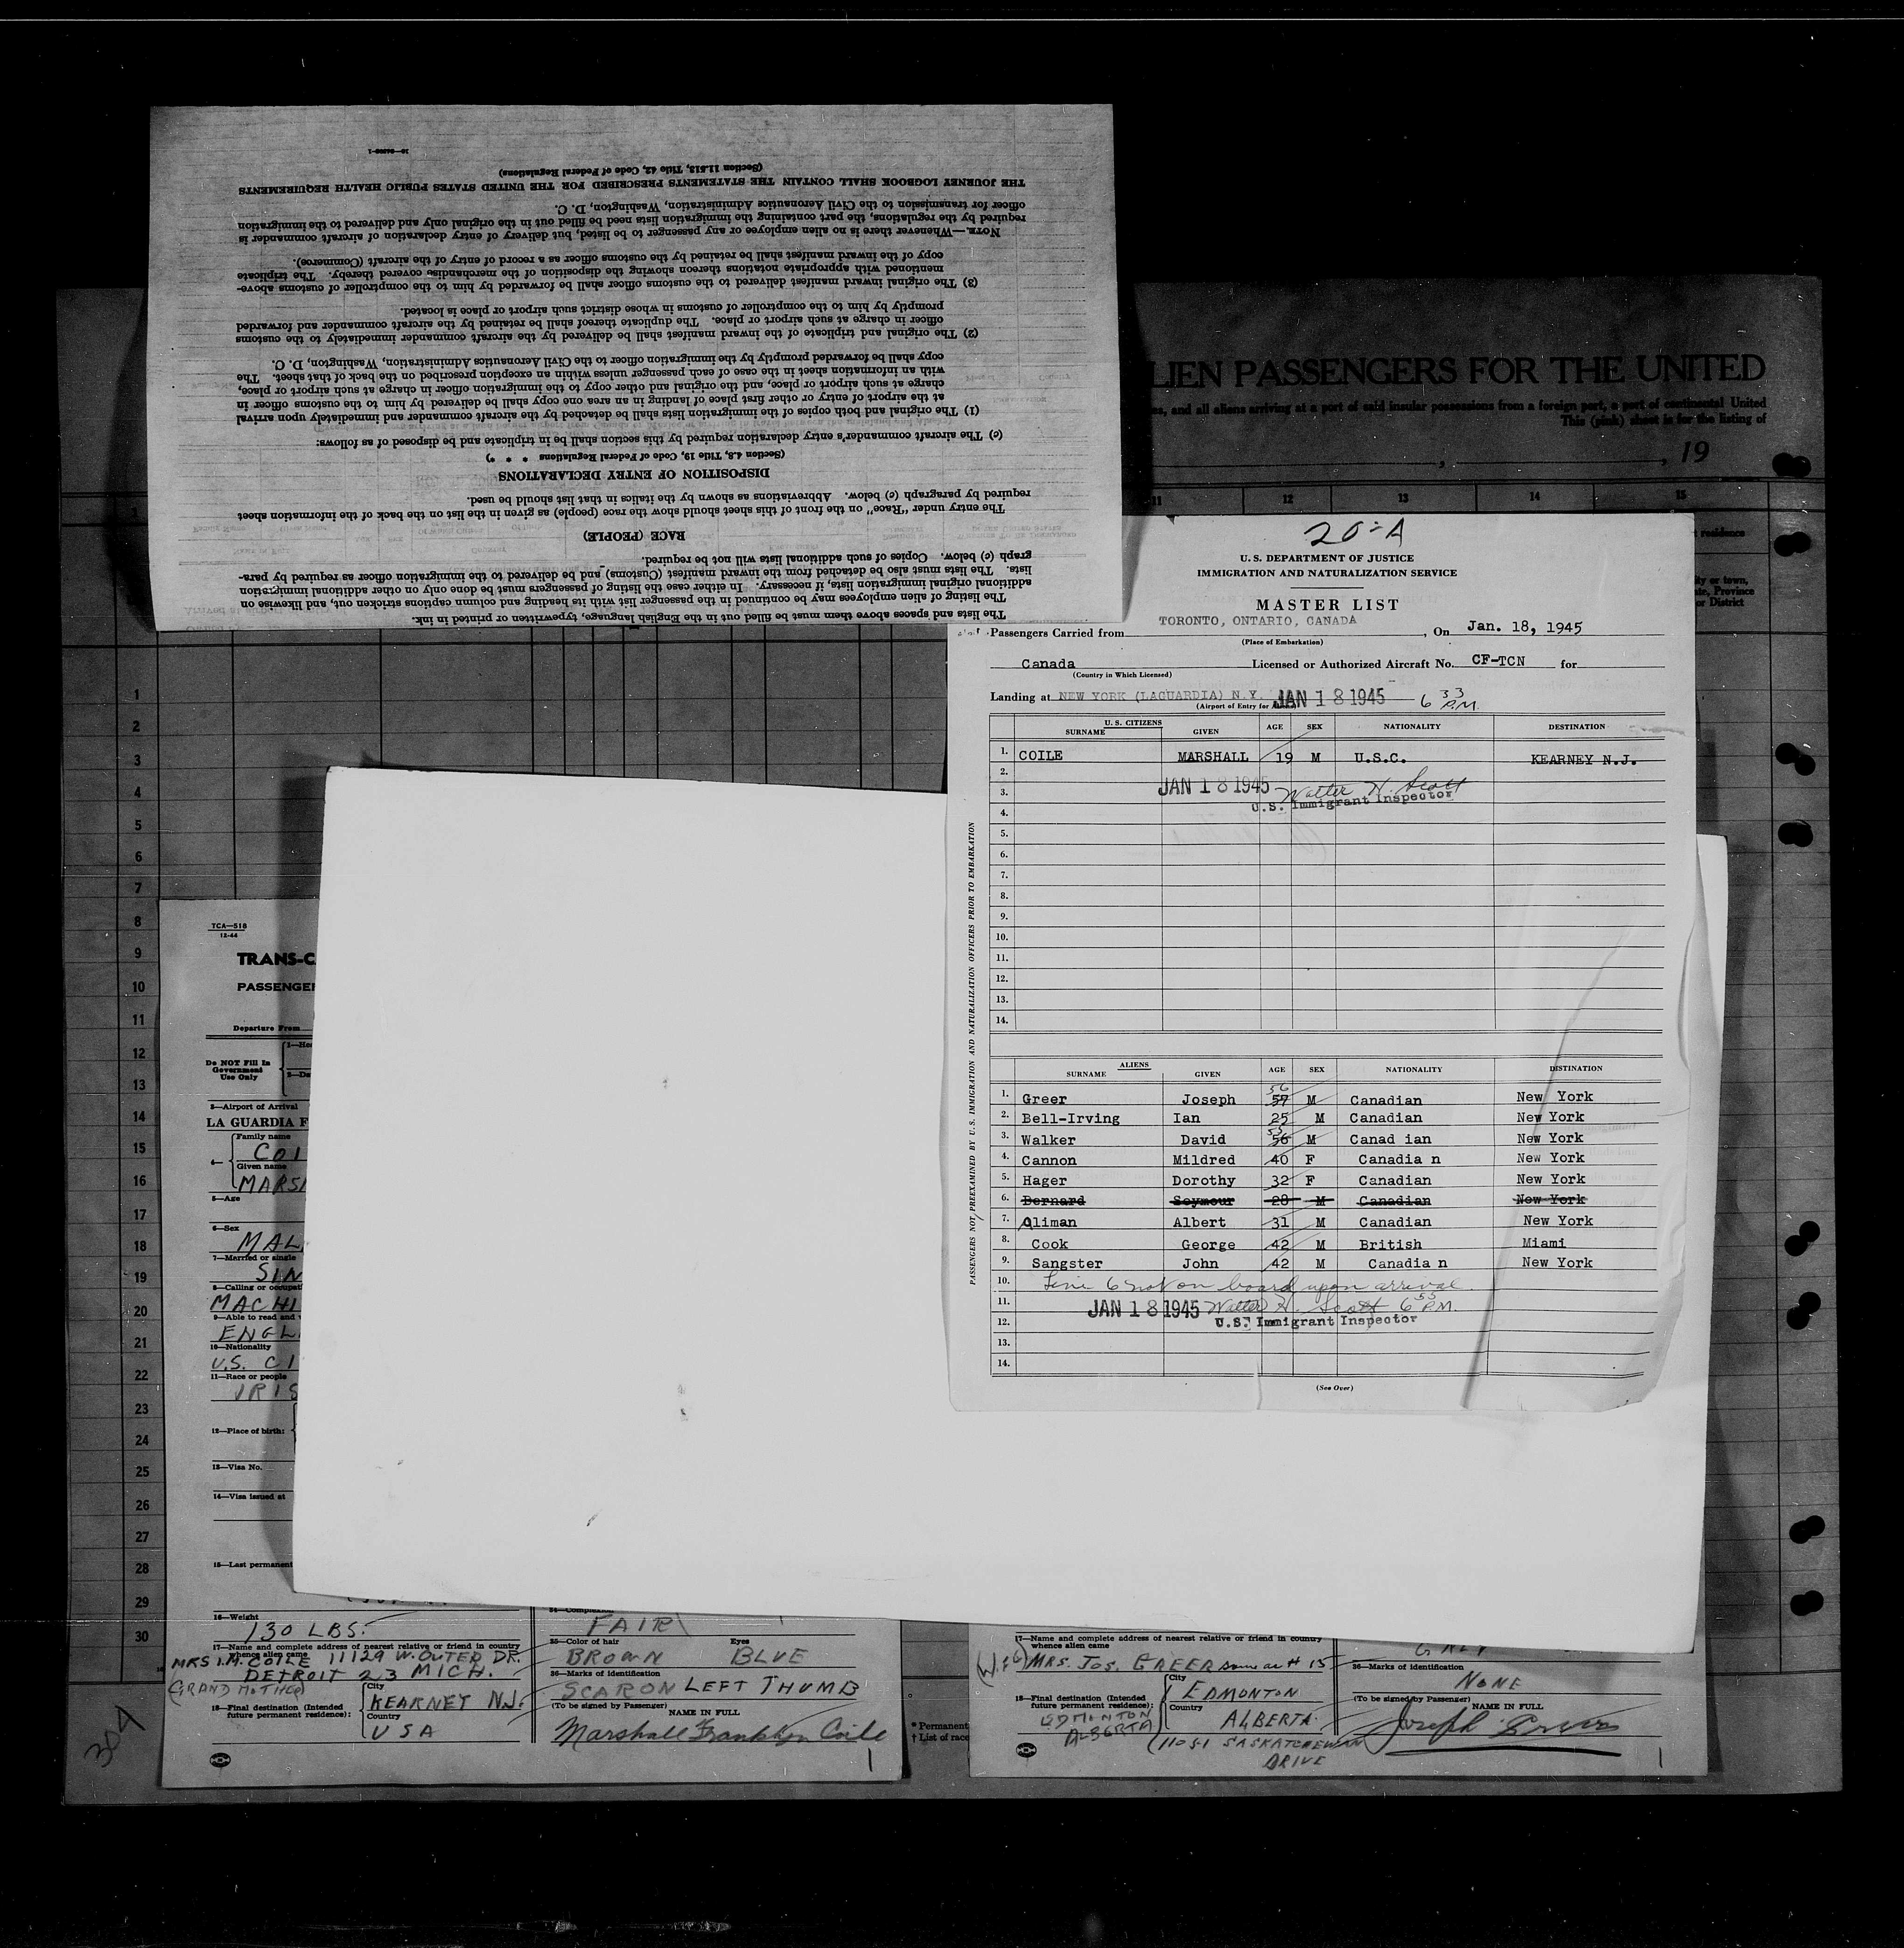 16—24626-1
(Section 11.513, Title 42, Code of Federal Regulations)
THE JOURNEY LOGBOOK SHALL CONTAIN THE STATEMENTS PRESCRIBED FOR THE UNITED STATES PUBLIC HEALTH REQUIREMENTS
officer for transmission to the Civil Aeronautics Administration, Washington, D. C.
required by the regulations, the part containing the immigration lists need be filled out in the original only and delivered to the immigration
NOTE.—Whenever there is no alien employee or any passenger to be listed, but delivery of entry declaration of aircraft commander is
copy of the inward manifest shall be retained by the customs officer as a record of entry of the aircraft (Commerce).
mentioned with appropriate notations thereon showing the disposition of the merchandise covered thereby. The triplicate
(3) The original inward manifest delivered to the customs officer shall be forwarded by him to the comptroller of customs above-
promptly by him to the comptroller of customs in whose district such airport or place is located.
officer in charge at such airport or place. The duplicate thereof shall be retained by the aircraft commander and forwarded
(2) The original and triplicate of the inward manifest shall be delivered by the aircraft commander immediately to the customs
copy shall be forwarded promptly by the immigration officer to the Civil Aeronautics Administration, Washington, D. C.
with an information sheet in the case of each passenger unless within an exception prescribed on the back of that sheet. The
charge at such airport or place, and the original and other copy to the immigration officer in charge at such airport or place,
at the airport of entry or other first place of landing in an area one copy shall be delivered by him to the customs officer in
(1) The original and both copies of the immigration lists shall be detached by the aircraft commander and immediately upon arrival
(c) The aircraft commander's entry declaration required by this section shall be in triplicate and be disposed of as follows:
(Section 4.8, Title 19, Code of Federal Regulations * * *)
DISPOSITION OF ENTRY DECLARATIONS
required by paragraph (c) below. Abbreviations as shown by the italics in that list should be used.
The entry under "Race" on the front of this sheet should show the race (people) as given in the list on the back of the information sheet
RACE (PEOPLE)
graph (c) below. Copies of such additional lists will not be required.
lists. The lists must also be detached from the inward manifest (Customs) and be delivered to the immigration officer as required by para-
additional original immigration lists, if necessary. In either case the listing of passengers must be done only on other additional immigration
The listing of alien employees may be continued in the passenger list with its heading and column captions stricken out, and likewise on
The lists and spaces above them must be filled out in the English language, typewritten or printed in ink.
LIEN PASSENGERS FOR THE UNITED
es, and all aliens arriving at a port of said insular possessions from a foreign port, a port of continental United
This (pink) sheet is for the listing of
, 19
11 12 13 14 15
residence
ity or town,
te, Province
or District
20-A
U. S. DEPARTMENT OF JUSTICE
IMMIGRATION AND NATURALIZATION SERVICE
MASTER LIST
Passengers Carried from TORONTO, ONTARIO, CANADA, On Jan. 18, 1945
(Place of Embarkation)
Canada Licensed or Authorized Aircraft No. CF-TCN for
(Country in Which Licensed)
Landing at NEW YORK (LAGUARDIA) N.Y. JAN 18 1945 6 33 P.M.
(Airport of Entry for
U. S. CITIZENS
SURNAME GIVEN AGE SEX NATIONALITY DESTINATION
1. COILE MARSHALL 19 M U.S.C. KEARNEY N.J.
2.
3. JAN 18 1945 Walter H. Scott
U.S. Immigrant Inspector
4.
5.
6.
7.
8.
9.
10.
11.
12.
13.
14.
PASSENGERS NOT PREEXAMINED BY U.S. IMMIGRATION AND NATURALIZATION OFFICERS PRIOR TO EMBARKATION
ALIENS
SURNAME GIVEN AGE SEX NATIONALITY DISTINATION
56
1. Greer Joseph 57 M Canadian New York
2. Bell-Irving Ian 25 M Canadian New York
55
3. Walker David 56 M Canad ian New York
4. Cannon Mildred 40 F Canadia n New York
5. Hager Dorothy 32 F Canadian New York
6. Bernard Seymour 28 M Canadian New York
7. Aliman Albert 31 M Canadian New York
8. Cook George 42 M British Miami
9. Sangster John 42 M Canadia n New York
10. Line 6 not on board upon arrival.
11. JAN 18 1945 Walter H. Scott 6 55 P.M.
12. U.S. Immigrant Inspector
13.
14.
(See Over)
1
1
2
3
4
5
6
7
8
9
10
11
12
13
14
15
16
17
18
19
20
21
22
23
24
25
26
27
28
29
30
TCA—518
12-44
TRANS-C
PASSENGE
Departure From
Do NOT Fill In
Government
Use Only
1—He
2—Da
3—Airport of Arrival
LA GUARDIA F
Family name
4— COI
Given name
MARS
5—Age
6—Sex
MAL
7—Married or single
SIN
8—Calling or occupat
MACHI
9—Able to read and
ENGL
10—Nationality
U.S. CI
11—Race or people
IRIS
12—Place of birth:
13—Visa No.
14—Visa issued at
15—Last permanent
16—Weight
130 LBS.
17—Name and complete address of nearest relative or friend in country
whence alien came
MRS I.M. COILE 11129 W. OUTER DR.
DETROIT 23 MICH.
(GRAND MOTHER)
18—Final destination (Intended
future permanent residence):
City
KEARNEY N.J.
Country
USA
24—Complexion
FAIR
25—Color of hair Eyes
BROWN BLUE
26—Marks of identification
SCAR ON LEFT THUMB
(To be signed by Passenger)
NAME IN FULL
Marshall Franklyn Coile
1
304
* Permanent
† List of race
17—Name and complete address of nearest relative or friend in country
whence alien came
(Wife) MRS. JOS. GREER same as # 15
18—Final destination (Intended
future permanent residence):
EDMONTON
ALBERTA
City
EDMONTON
Country
ALBERTA
(11051 SASKATCHEWAN
DRIVE
GREY
26—Marks of identification
NONE
(To be signed by Passenger)
NAME IN FULL
Joseph Greer
1